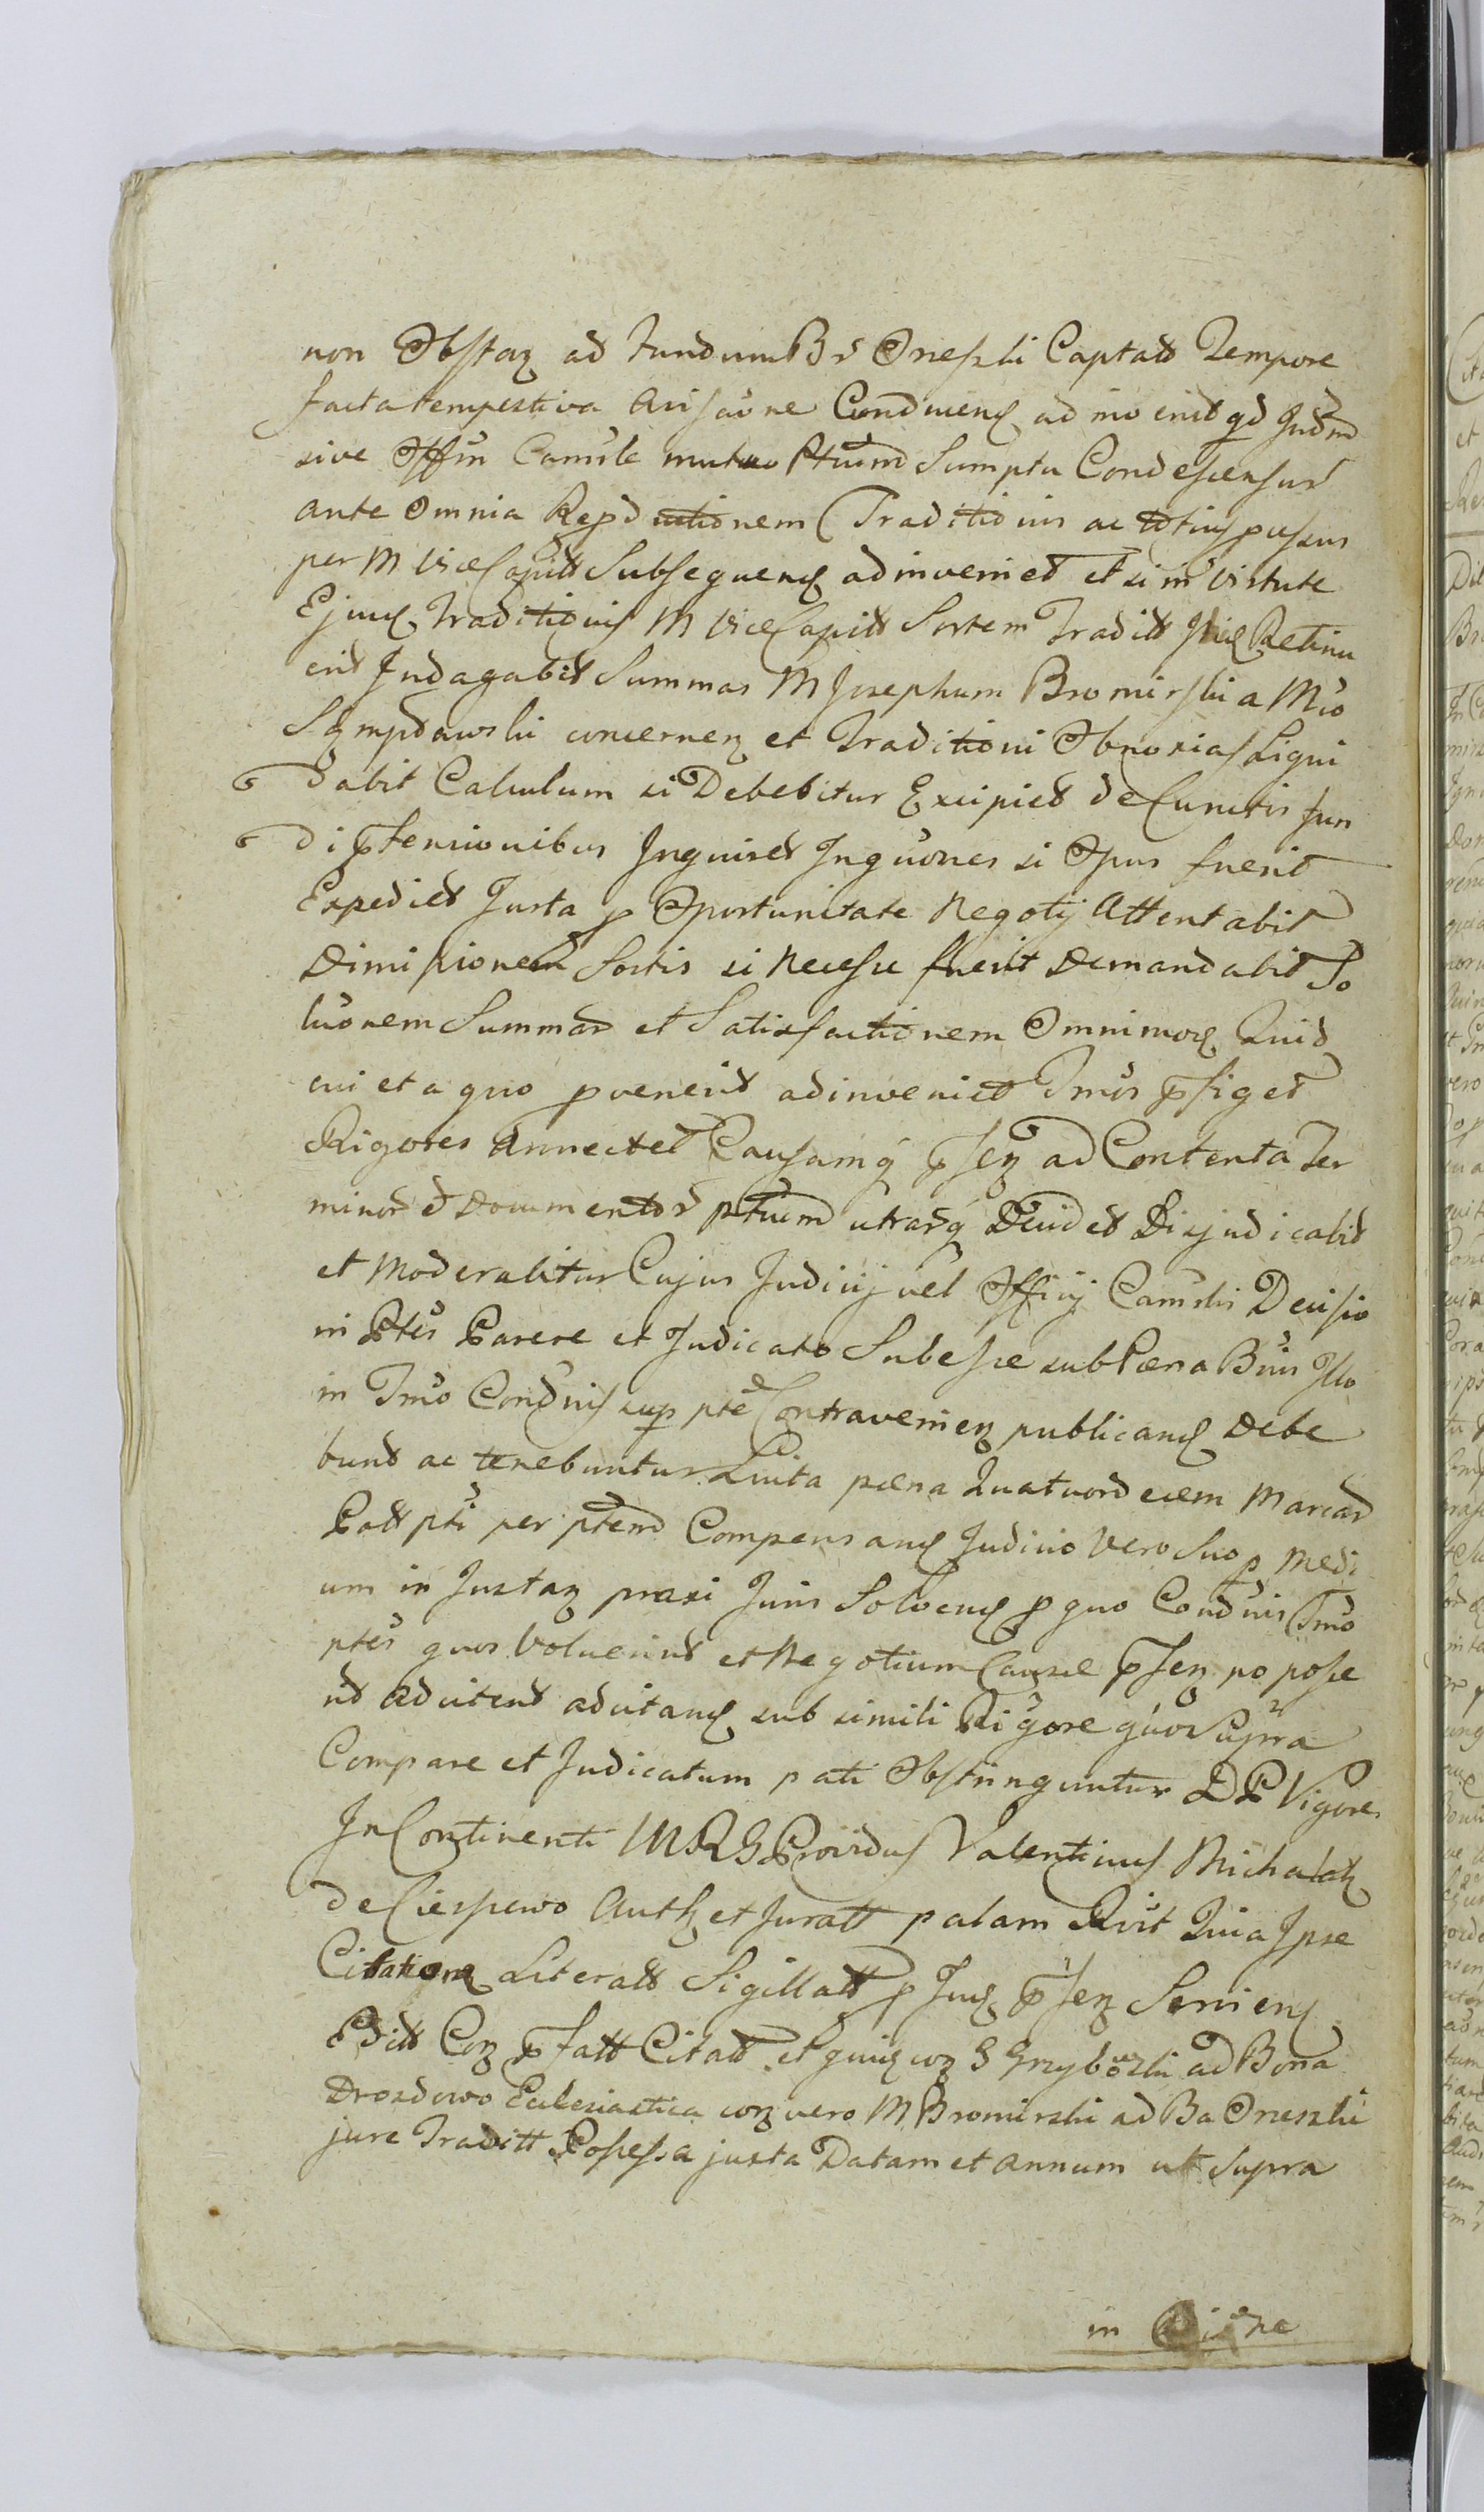 non Obstan ad fundum Br Oneszki Captato Tempore
facta tempestiva Avisaõne Conducens ad invenit qd Judm
sive Offm Camsle mutuo Ptium Sumptu Condescensur
ante Omnia Repd uctionem Traditionis ac totius possus
per M ViceCapitt Subsequens adinveniet et si in virtute
Ejus Traditionis M ViceCapitt Sortem Traditt Retinu
erit Indagabit Summas M Josephum Bromirski a Mco
concernen et Traditioni Obnoxias Liqui
dabit Calculum si Debebitur Excipiet de Cunctis fun
di ptensionibus Inquiret Inquones si Opus fuerit
Expediet Juxta p Oportunitate Negotij Attentabit
Dimissionem Sortis si Necesse fuerit Demandabit So
luõnem Summar et Satisfactionem Omnimod Quid
cui et a quo pvenerit adinveniet Tmos pfiget
Rigores Annectet Causamq psen ad Contenta Ter
minor & Documentor ptium utrarq Decidet Disjudicabit
et Moderabitur Cujus Judicij vel Officij Camslis Decisio
ni Ptes Parere et Judicato Subesse sub Pæna Bnis Illo
in Tmo Condnis sup pte Contravenien publicans Debe
bunt ac tenebuntur Luita pæna Quatuordecem Marcar
Patt pti per ptem Compensans Judicio Vero Suo p Medi
um in Instan praxi Juris Solvens p quo Condnis Tmo
ptes quos Voluerint et Negotium Causæ psen po posce
nt adcitent adcitans sub simili Rigore quos Supra
Compare et Judicatum pati Obstringuntur DP Vigore
In Continenti MRG Providus Valentinus Michalak
de Ciespewo Auth et Juratt palam Rvit Quia Ipse
Citationen Literatt Sigillatt p Jus psen Serviens
Editt Con pfatt Citatt et quis con G Grzyboski ad Bona
Drozdowo Ecclesiastica con vero M Bromirski ad Ba Oneszki
jure Traditt Possessa juxta Datam et Annum ut Supra